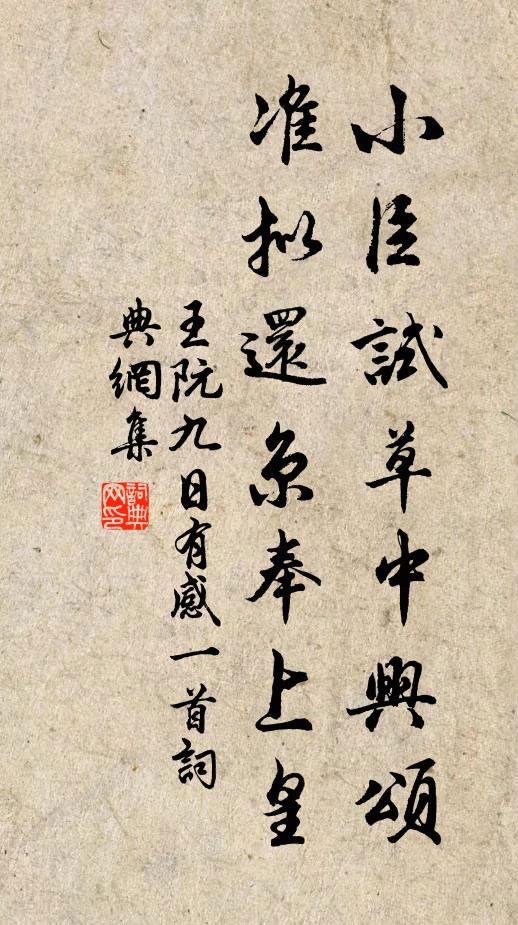 小臣試草中興頌
准拟還京奉上皇
王阮九日有感一首詞
典網集
詞典網印